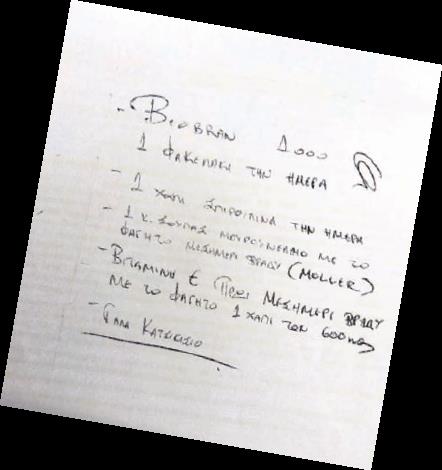 - BIOBRAN 1000
1 ΦΑΚΕΛΑΚΙ ΤΗΝ ΗΜΕΡΑ
- 1 ΧΑΠΙ ΣΠΙΡΟΥΛΙΝΑ ΤΗΝ ΗΜΕΡΑ
- 1 Κ. ΣΟΥΠΑΣ ΜΟΥΡΟΥΝΕΛΑΙΟ ΜΕ ΤΟ
ΦΑΓΗΤΟ ΜΕΣΗΜΕΡΙ ΒΡΑΔΥ (MOLLER)
- ΒΙΤΑΜΙΝΗ Ε ΠΡΩΙ ΜΕΣΗΜΕΡΙ ΒΡΑΔΥ
ΜΕ ΤΟ ΦΑΓΗΤΟ 1 ΧΑΠΙ ΤΩΝ 600mg
- ΓΑΛΑ ΚΑΤΣΙΚΙΣΙΟ